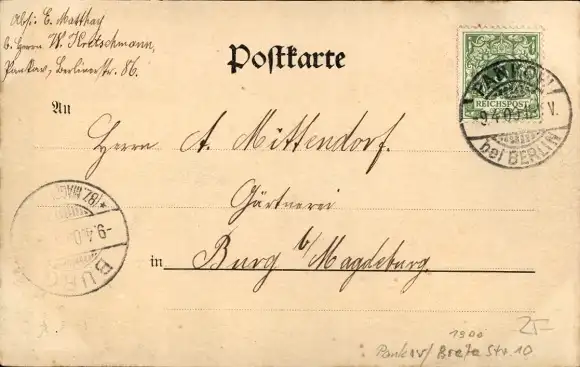 Abs: E. Matthey
b. Herrn W. Kretschmann,
Pankow, Berlinerstr. 86.
Postkarte
REICHSPOST
PANKOW
-9.4.00
V.
bei BERLIN
An
Herrn A. Mittendorf.
Gärtnerei
in Burg b/Magdeburg.
*(BZ. MAGD
-9.4.0
BURG
1900
25-
Pankow/ Breite Str. 10